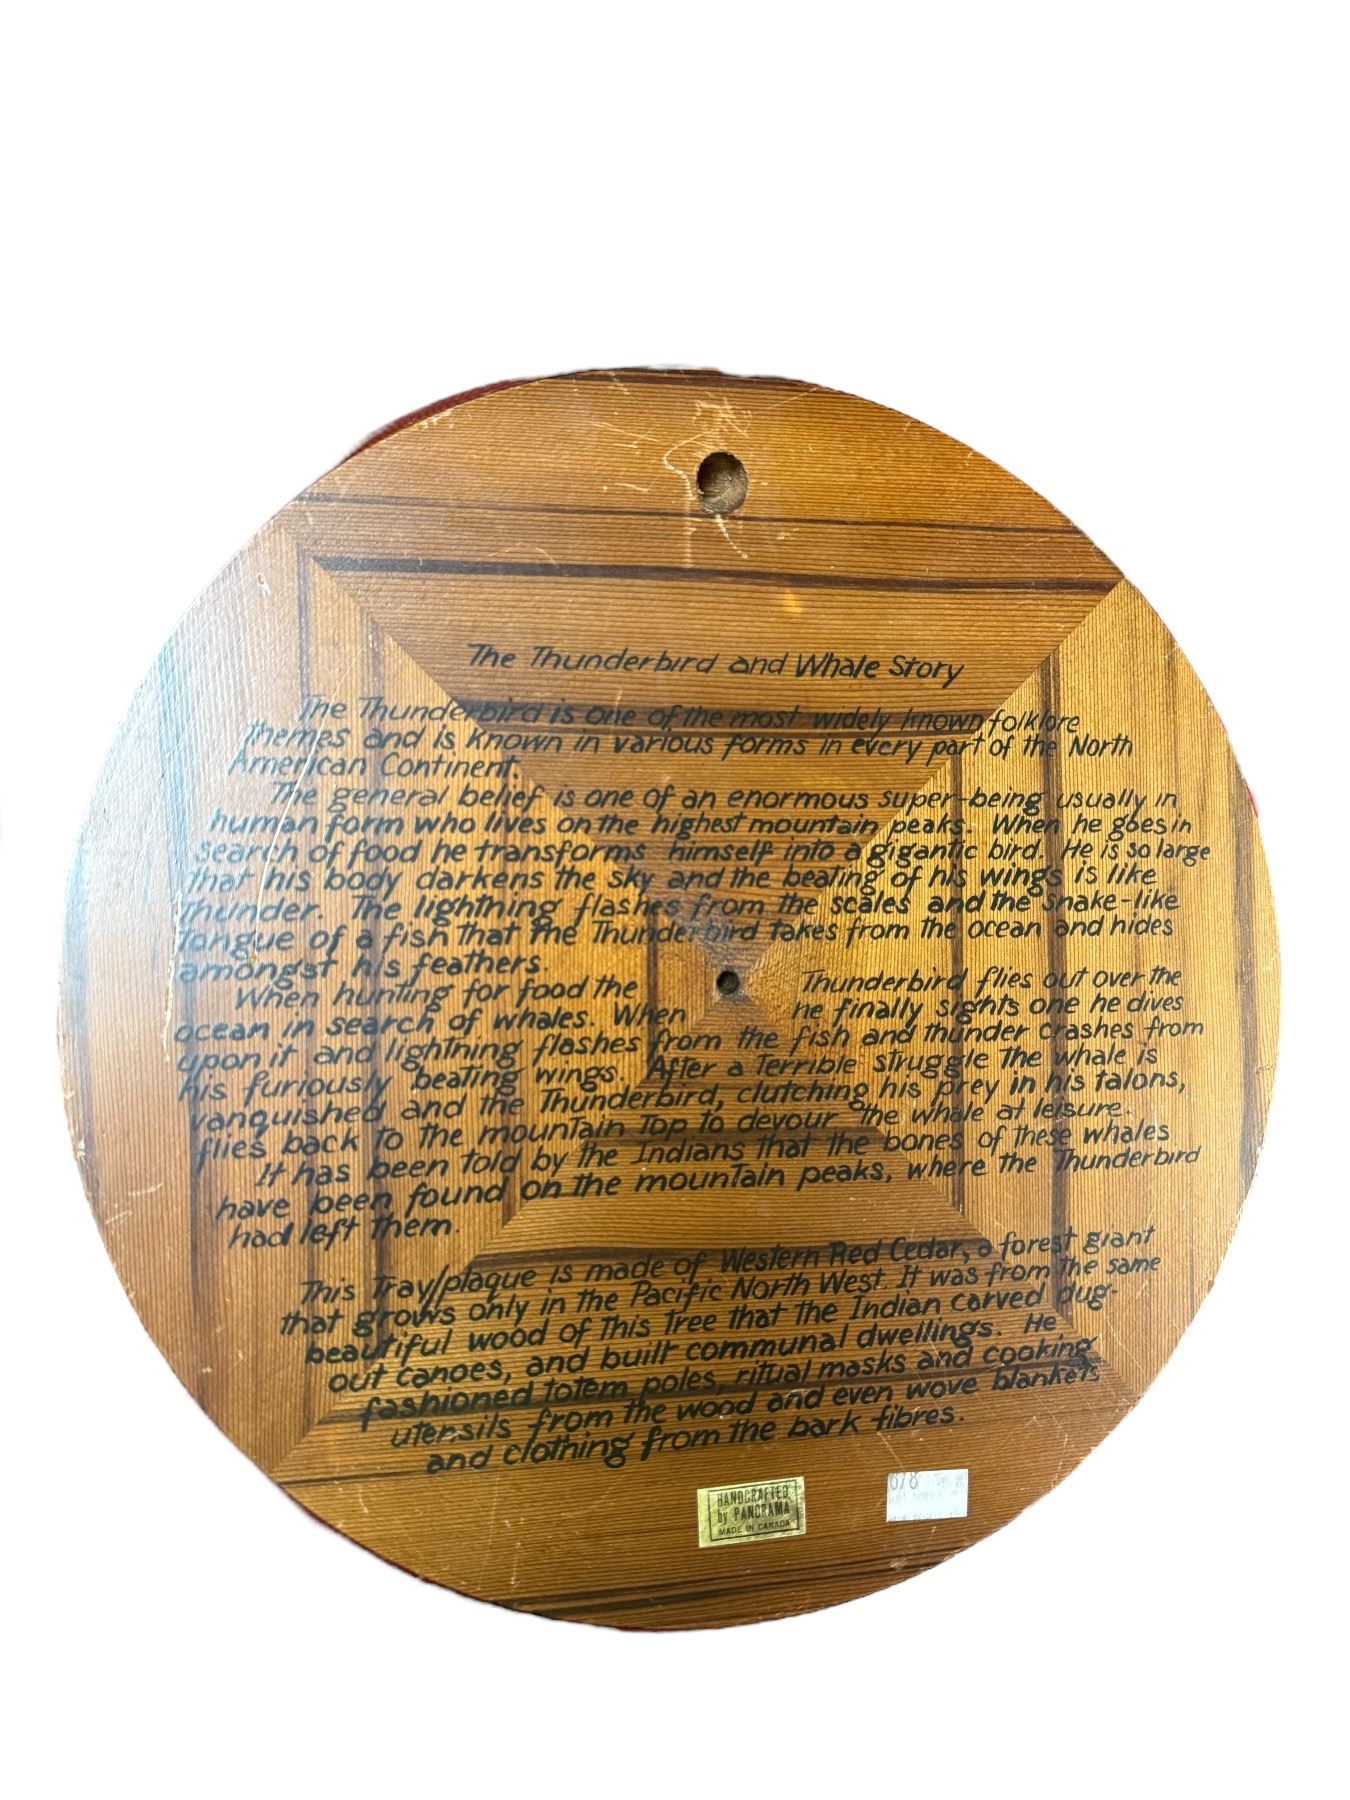 The Thunderbird and Whale Story
The Thunderbird is one of the most widely known folklore
Themes and is known in various forms in every part of the North
American Continent.
The general belief is one of an enormous super-being usually in
human form who lives on the highest mountain peaks. When he goes in
search of food he transforms himself into a gigantic bird. He is so large
that his body darkens the sky and the beating of his wings is like
thunder. The lightning flashes from the scales and the snake-like
Tongue of a fish that the Thunderbird takes from the ocean and hides
amongst his feathers.
When hunting for food the Thunderbird flies out over the
ocean in search of whales. When he finally sights one he dives
upon it and lightning flashes from the fish and thunder crashes from
his furiously beating wings. After a Terrible struggle the whale is
vanquished and the Thunderbird, clutching his prey in his talons,
flies back to the mountain Top to devour the whale at leisure.
It has been told by the Indians that the bones of these whales
have been found on the mountain peaks, where the Thunderbird
had left them.
This Tray/plaque is made of Western Red Cedar, a forest giant
that grows only in the Pacific North West. It was from the same
beautiful wood of this Tree that the Indian carved dug-
out canoes, and built communal dwellings. He
fashioned totem poles, ritual masks and cooking
utensils from the wood and even wove blankets
and clothing from the bark fibres.
HANDCRAFTED
by PANORAMA
MADE IN CANADA
678